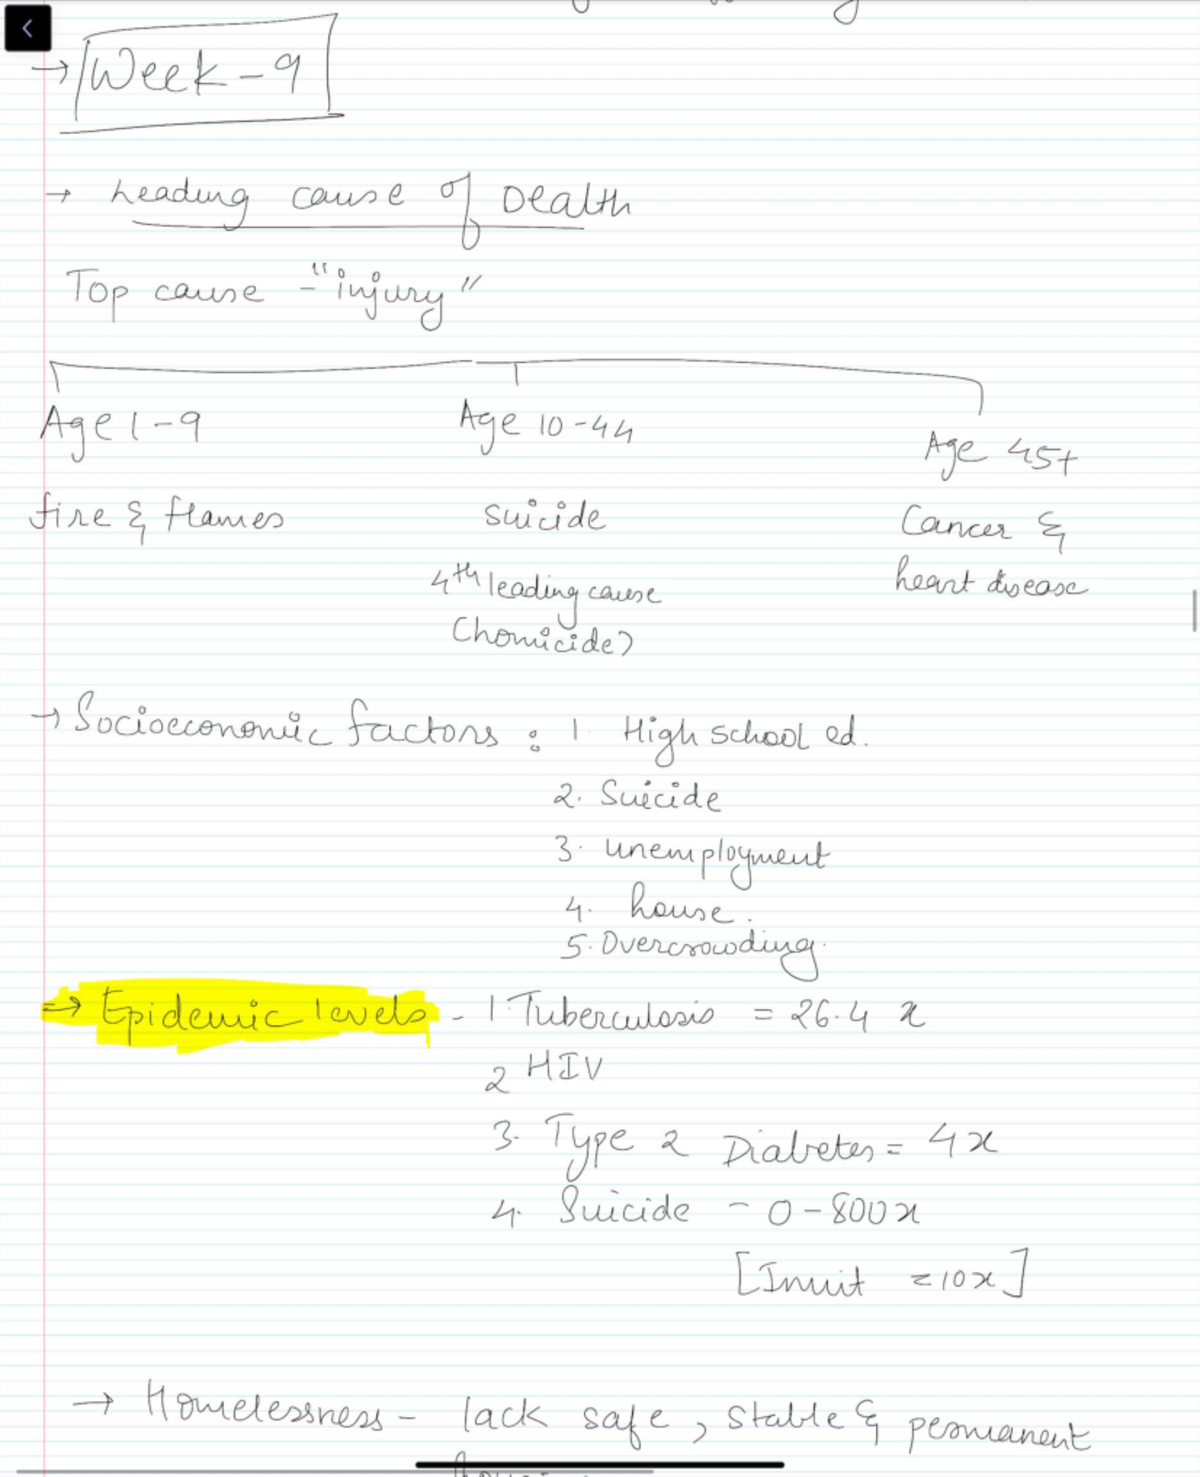 → Week-9
→ Leading cause of Death
Top cause - "injury"
Age 1-9
Age 10-44
Age 45+
fire & flames
suicide
Cancer &
heart disease
4th leading cause
(homicide)
→ Socioeconomic factors : 1. High school ed.
2. Suicide
3. unemployment
4. house.
5. Overcrowding.
⇒ Epidemic levels - 1. Tuberculosis = 26.4 x
2 HIV
3. Type 2 Diabetes = 4x
4. Suicide - 0-800x
[Inuit = 10x]
→ Homelessness - lack safe, stable & permanent